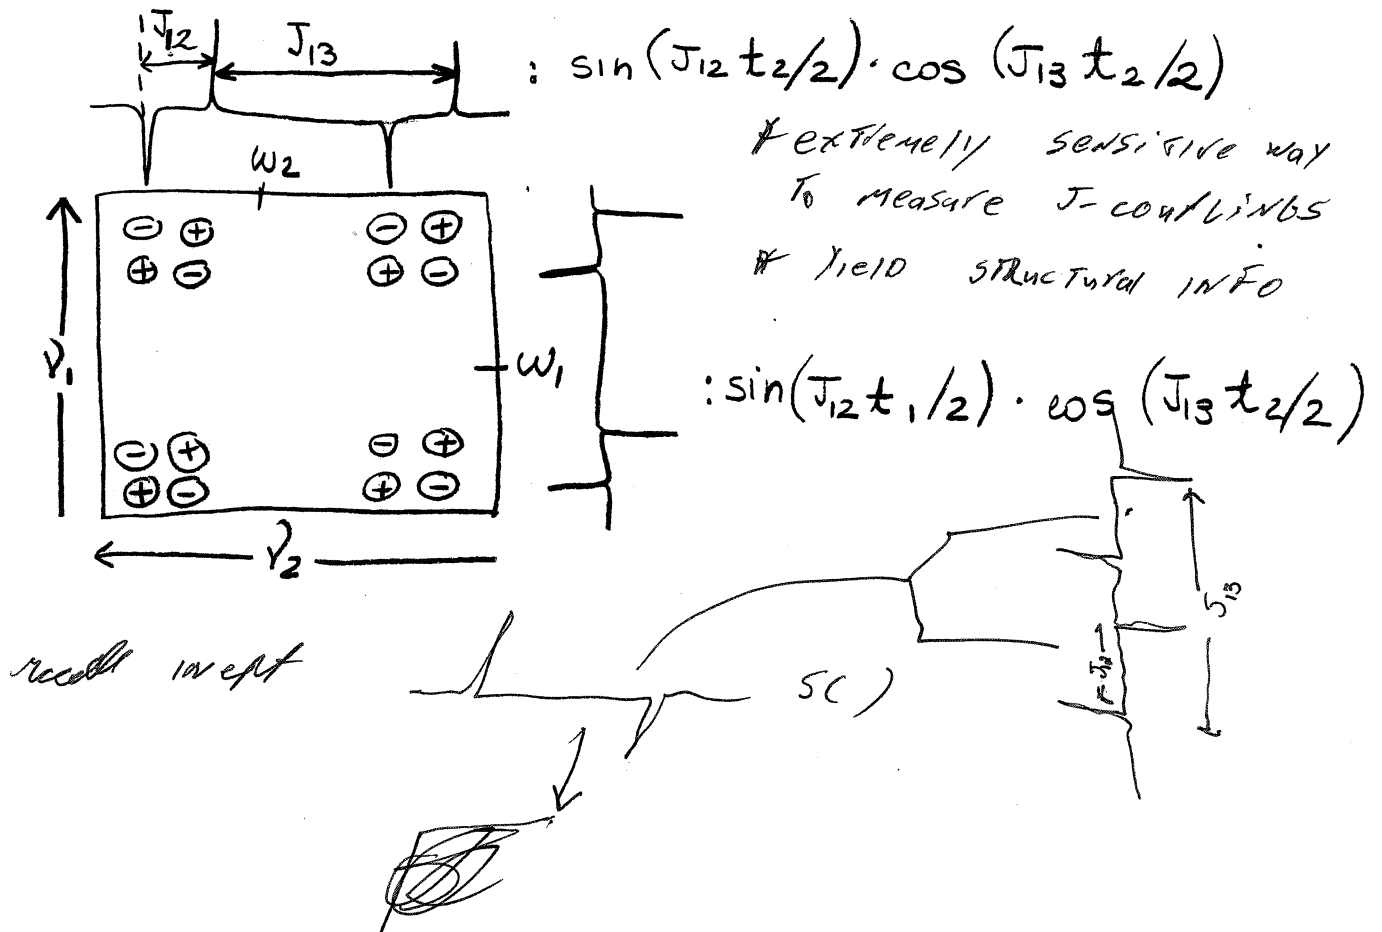 J12
J13
: sin (J12 t2/2) · cos (J13 t2/2)
* extremely sensitive way
to measure J-couplings
* Yield structural info
ω2
⊖ ⊕ ⊖ ⊕
⊕ ⊖ ⊕ ⊖
ν1
ω1
: sin(J12 t1/2) · cos (J13 t2/2)
⊖ ⊕ ⊖ ⊕
⊕ ⊖ ⊕ ⊖
ν2
J13
inept
S( )
J12